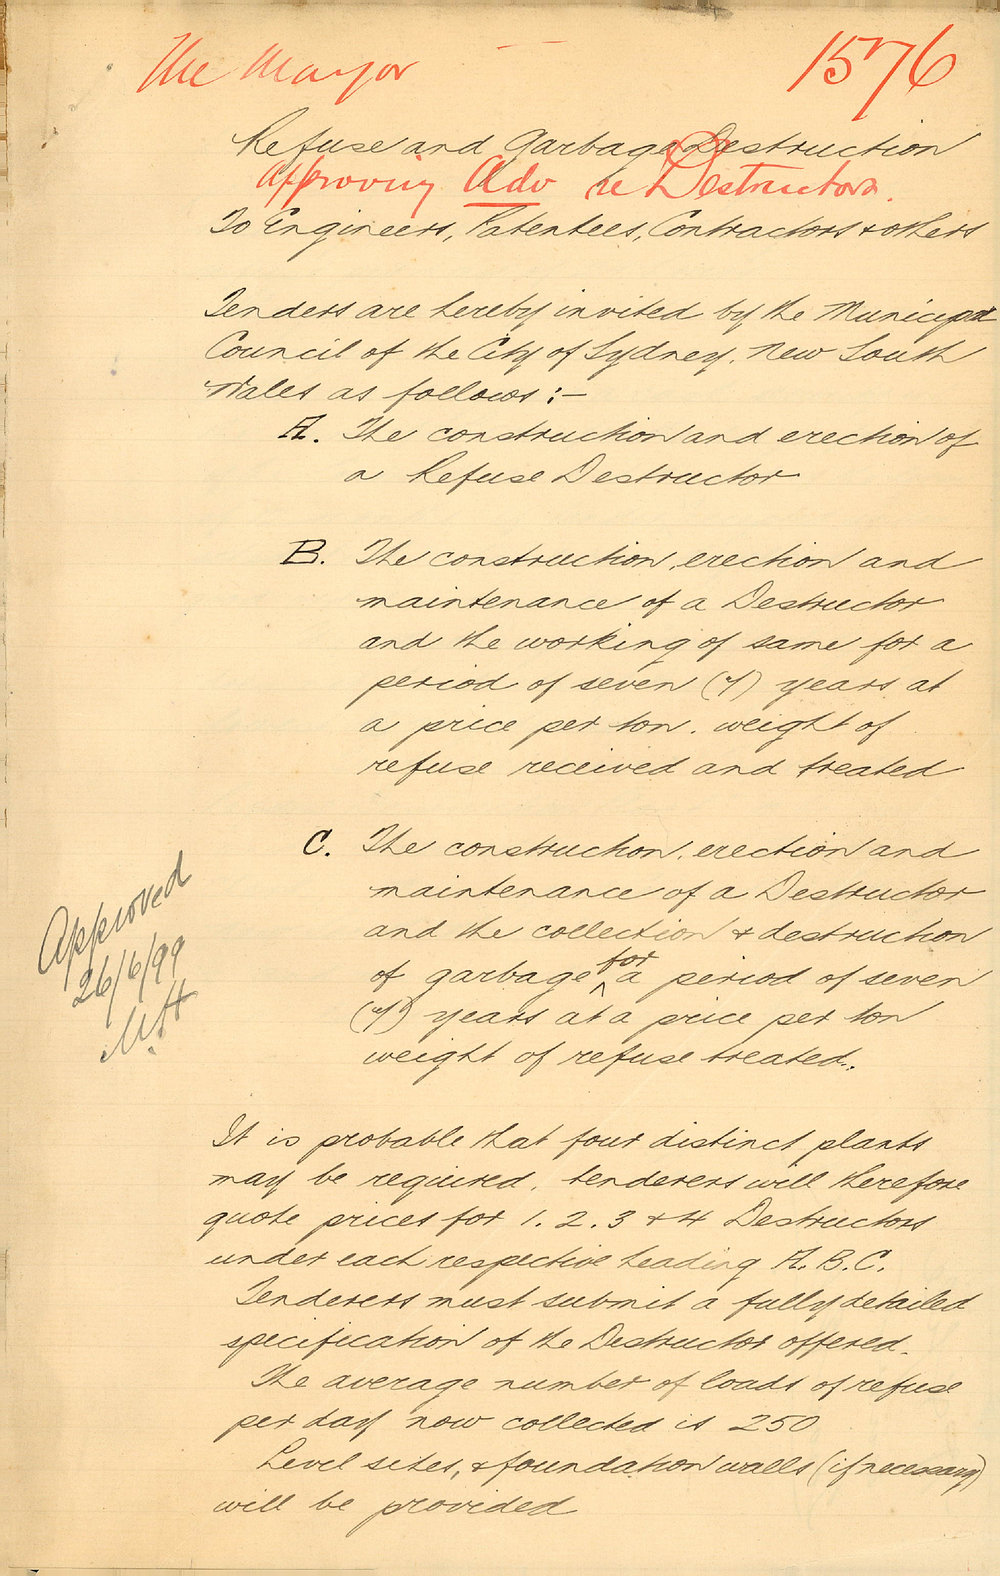 The Mayor
1576
Refuse and Garbage Destruction
Approving Adv re Destructors.
To Engineers, Patentees, Contractors & others
Tenders are hereby invited by the Municipal
Council of the City of Sydney. New South
Wales as follows :-
A. The construction and erection of
a Refuse Destructor
B. The construction, erection and
maintenance of a Destructor
and the working of same for a
period of seven (7) years at
a price per ton. weight of
refuse received and treated
C. The construction, erection and
maintenance of a Destructor
and the collection & destruction
of garbage for a period of seven
(7) years at a price per ton
weight of refuse treated.
Approved
26/6/99
It is probable that four distinct plants
may be required, tenderers will therefore
quote prices for 1. 2. 3 & 4 Destructors
under each respective heading A. B. C.
Tenderers must submit a fully detailed
specification of the Destructor offered.
The average number of loads of refuse
per day now collected is 250
Level sites, & foundation walls (if necessary)
will be provided